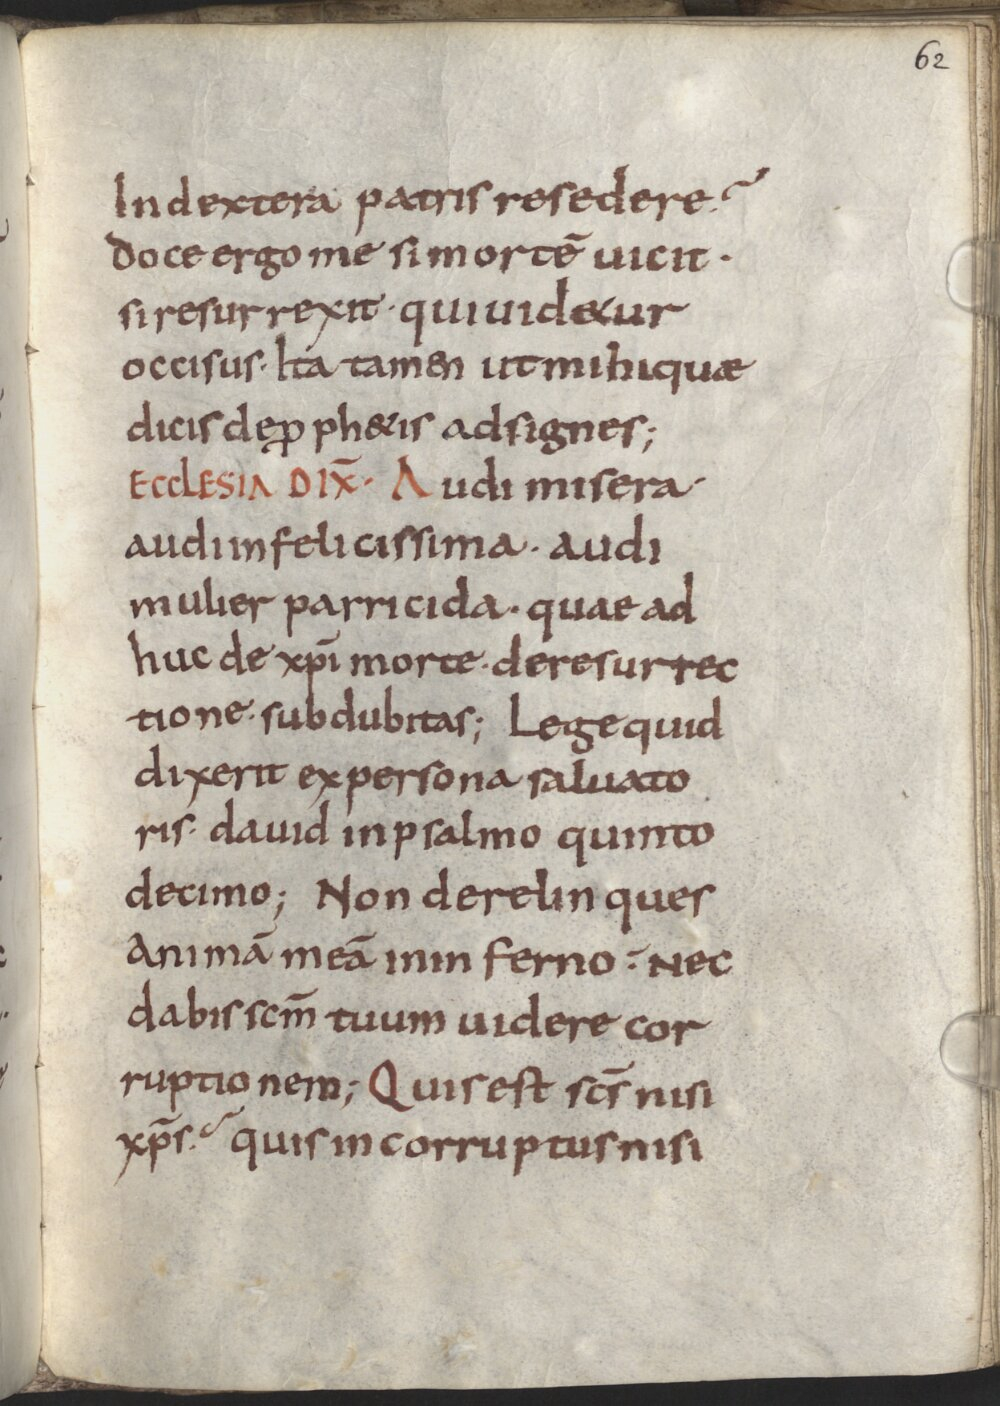 62
In dextera patris resedere?
Doce ergo me si mortē uicit ·
si resurrexit · qui uid&ur
occisus · Ita tamen ut mihi quae
dicis de ꝓph&is adsignes;
ECCLESIA DIX̄ · Audi misera ·
audi infelicissima · audi
mulier parricida · quae ad
huc de xp̄i morte · de resurrec
tione · subdubitas; Lege quid
dixerit ex persona saluato
ris · dauid in psalmo quinto
decimo; Non derelinques
animā meā in inferno · nec
dabis scm̄ tuum uidere cor
ruptionem; Quis est scs̄ nisi
xp̄s? quis incorruptus nisi